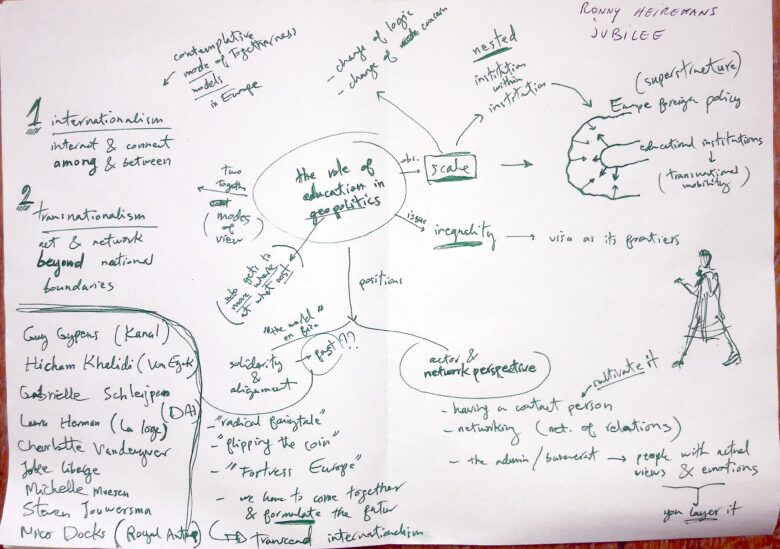 RONNY HEIREMANS
JUBILEE
contemplative
mode of Togetherness
models
in Europe
1 internationalism
interact & connect
among & between
2
transnationalism
act & network
beyond national
boundaries
Two
Together
(modes of view)
who gets to
move where
at what cost
the role of
education in
geopolitics
obs.
scale
- change of logic
- change of concern
nested
institution
within
institution
(superstructure)
Europe foreign policy
educational institutions
(transnational
mobility)
inequality
visa as its frontiers
positions
"the world on fire"
solidarity
&
alignment
past??
- "radical fairytale"
- "flipping the coin"
- "Fortress Europe"
- we have to come together
& formulate the futur
TO transcend internationalism
actor &
network perspective
cultivate it
- having a contact person
- networking (net. of relations)
- the admin/bureucrat → people with actual
views & emotions
you layer it
Guy Gypens (Kanal)
Hicham Khalidi (Van Eyck)
Gabrielle Schleijpen
(DAI)
Laura Herman (La loge)
Charlotte Vandevyver
Jolee Liberge
Michelle
Steven Jouwersma
Nico Docks (Royal Antwp)